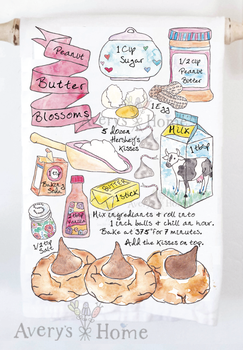 Peanut
Butter
Blossoms
1 Cup
Sugar
1/2 Cup
Peanut
Butter
1 Egg
5 dozen
Hershey's
Kisses
Milk
1 tbsp
Baking
Soda
Butter
1 stick
1/2 tsp
Salt
Mix ingredients & roll into
1 inch balls & chill an hour.
Bake at 375° for 7 minutes.
Add the Kisses on top.
Avery's Home